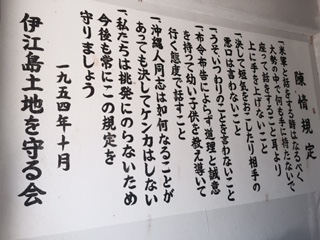 陳情規定
一、米軍と話をする時はなるべく、
大勢の中で何も手に持たないで
座って話をすること耳より
上に手を上げないこと
一、決して短気をおこしたり相手の
悪口は言わないこと
一、うそ、いつわりのことを言わないこと
一、布令布告によらず道理と誠意
を持って幼い子供を教え導いて
行く態度で話すこと
一、沖縄人同志は如何なることが
あっても決してケンカはしない
一、私たちは挑発にのらないため
今後も常にこの規定を
守りましょう
一九五四年十月
伊江島土地を守る会